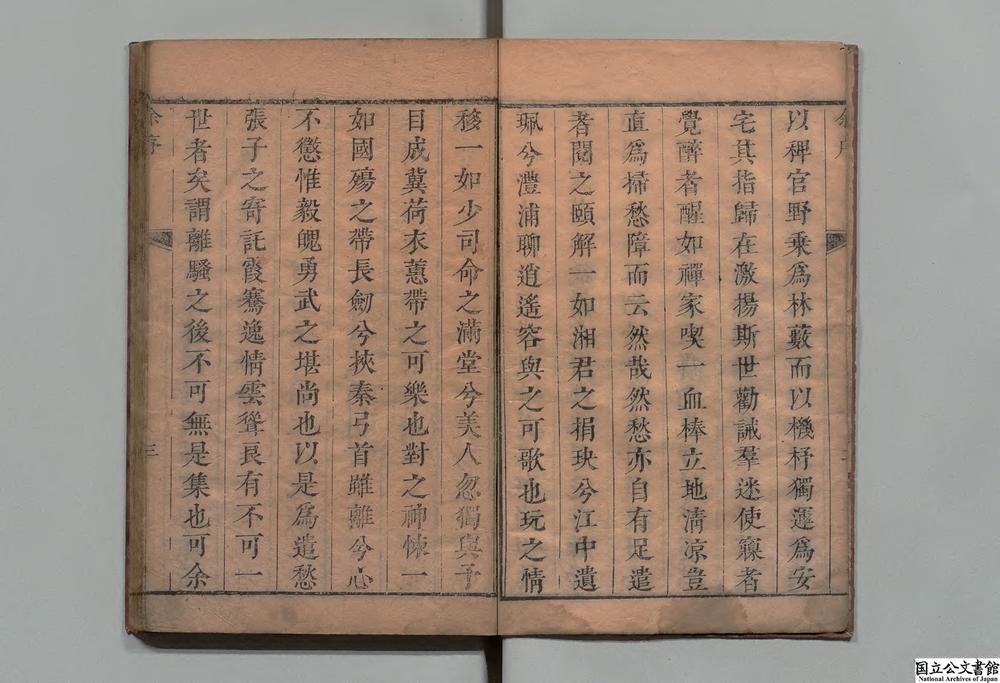 以稗官野乗爲林藪而以機杼獨運爲安
宅其指歸在激揚斯世勸誡羣迷使寱者
覺醉者醒如禪家喫一血棒立地淸凉豈
直爲掃愁障而云然哉然愁亦自有足遣
者閱之頤解一如湘君之捐玦兮江中遺
珮兮澧浦聊逍遙容與之可歌也玩之情
移一如少司命之滿堂兮美人忽獨與予
目成冀荷衣蕙帶之可樂也對之神悚一
如國殤之帶長劒兮挾秦弓首雖離兮心
不懲惟毅魄勇武之堪尚也以是爲遣愁
張子之寄託霞騫逸情雲聳良有不可一
世者矣謂離騷之後不可無是集也可余
三
国立公文書館
National Archives of Japan